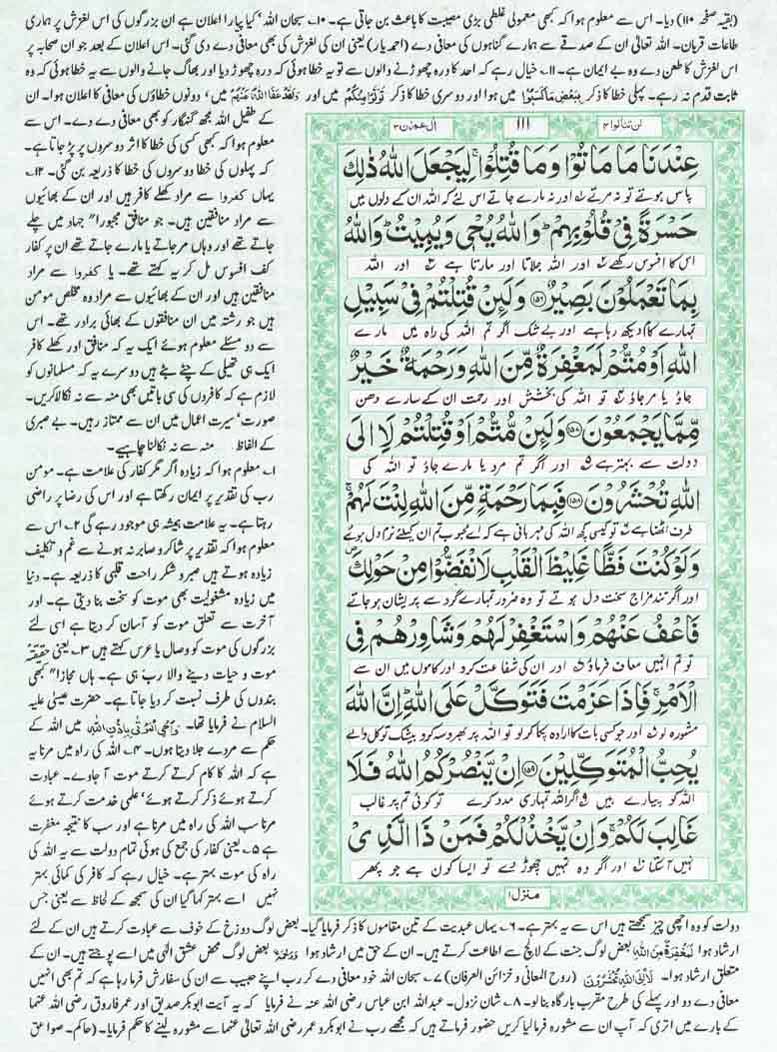 (بقیہ صفحہ ۱۱۰) دیا۔ اس سے معلوم ہوا کہ کبھی معمولی غلطی بڑی مصیبت کا باعث بن جاتی ہے۔ ۱۰۔ سبحان اللہ' کیا پیارا اعلان ہے ان بزرگوں کی اس لغزش پر ہماری
طاعات قربان۔ اللہ تعالیٰ ان کے صدقے سے ہمارے گناہوں کی معافی دے (احمد یار) یعنی ان کی لغزش کی بھی معافی دے دی گئی۔ اس اعلان کے بعد جو ان صحابہ پر
اس لغزش کا طعن دے وہ بے ایمان ہے۔ ۱۱۔ خیال رہے کہ احد کا درہ چھوڑنے والوں سے تو یہ خطا ہوئی کہ درہ چھوڑ دیا اور بھاگ جانے والوں سے یہ خطا ہوئی کہ وہ
ثابت قدم نہ رہے۔ پہلی خطا کا ذکر بِبَعْضِ مَا كَسَبُوْا میں ہوا اور دوسری خطا کا ذکر تَوَلَّوْا مِنْكُمْ میں اور وَلَقَدْ عَفَا اللّٰهُ عَنْهُمْ میں' دونوں خطاؤں کی معافی کا اعلان ہوا۔ ان
کے طفیل اللہ مجھ گنہگار کو بھی معافی دے دے۔ اس سے
معلوم ہوا کہ کبھی کسی کی خطا کا اثر دوسروں پر پڑ جاتا ہے۔
کہ پہلوں کی خطا دوسروں کی خطا کا ذریعہ بن گئی۔ ۱۲۔
یہاں كفروا سے مراد کھلے کافر ہیں اور ان کے بھائیوں
سے مراد منافقین ہیں۔ جو منافق مجبورا" جہاد میں چلے
جاتے تھے اور وہاں مر جاتے یا مارے جاتے تھے ان پر کفار
کف افسوس مل کر یہ کہتے تھے۔ یا كفروا سے مراد
منافقین ہیں اور ان کے بھائیوں سے مراد وہ مخلص مومن
ہیں جو رشتہ میں ان منافقوں کے بھائی برادر تھے۔ اس
سے دو مسئلے معلوم ہوئے ایک یہ کہ منافق اور کھلے کافر
ایک ہی تھیلی کے چٹے بٹے ہیں دوسرے یہ کہ مسلمانوں کو
لازم ہے کہ کافروں کی سی باتیں بھی منہ سے نہ نکالا کریں۔
صورت' سیرت اعمال میں ان سے ممتاز رہیں۔ بے صبری
کے الفاظ منہ سے نہ نکالنا چاہیے۔
۱۔ معلوم ہوا کہ زیادہ اگر مگر کفار کی علامت ہے۔ مومن
رب کی تقدیر پر ایمان رکھتا ہے اور اس کی رضا پر راضی
رہتا ہے۔ یہ علامت ہمیشہ ہی موجود رہے گی ۲۔ اس سے
معلوم ہوا کہ تقدیر پر شاکر و صابر نہ ہونے سے غم و تکلیف
زیادہ ہوتے ہیں صبر و شکر راحت قلبی کا ذریعہ ہے۔ دنیا
میں زیادہ مشغولیت بھی موت کو سخت بنا دیتی ہے۔ اور
آخرت سے تعلق موت کو آسان کر دیتا ہے اسی لئے
بزرگوں کی موت کو وصال یا عرس کہتے ہیں ۳۔ یعنی حقیقۃ
موت و حیات دینے والا رب ہی ہے۔ ہاں مجازا" کبھی
بندوں کی طرف نسبت کر دیا جاتا ہے۔ حضرت عیسیٰ علیہ
السلام نے فرمایا تھا۔ وَاُحْيِ الْمَوْتٰى بِاِذْنِ اللّٰهِ میں اللہ کے
حکم سے مردے جلا دیتا ہوں۔ ۴۔ اللہ کی راہ میں مرنا یہ
ہے کہ اللہ کا کام کرتے کرتے موت آ جاوے۔ عبادت
کرتے ہوئے ذکر کرتے ہوئے' علمی خدمت کرتے ہوئے
مرنا سب اللہ کی راہ میں مرنا ہے اور سب کا نتیجہ مغفرت
ہے ۵۔ یعنی کفار کی جمع کی ہوئی تمام دولت سے یہ اللہ کی
راہ کی موت بہتر ہے۔ خیال رہے کہ کافر کی کمائی بہتر
نہیں اسے بہتر کہنا گیا ان کی سمجھ کے لحاظ سے یعنی جس
لن تنالوا ۴ ۱۱۱ اٰل عمرٰن ۳
عِنْدَنَا مَا مَاتُوْا وَمَا قُتِلُوْا ۚ لِيَجْعَلَ اللّٰهُ ذٰلِكَ
پاس ہوتے تو نہ مرتے اور نہ مارے جاتے اس لئے کہ اللہ ان کے دلوں میں
حَسْرَةً فِيْ قُلُوْبِهِمْ ؕ وَاللّٰهُ يُحْيٖ وَيُمِيْتُ ؕ وَاللّٰهُ
اس کا افسوس رکھے اور اللہ جلاتا اور مارتا ہے اور اللہ
بِمَا تَعْمَلُوْنَ بَصِيْرٌ ﴿۱۵۶﴾ وَلَئِنْ قُتِلْتُمْ فِيْ سَبِيْلِ
تمہارے کام دیکھ رہا ہے اور بے شک اگر تم اللہ کی راہ میں مارے
اللّٰهِ اَوْ مُتُّمْ لَمَغْفِرَةٌ مِّنَ اللّٰهِ وَرَحْمَةٌ خَيْرٌ
جاؤ یا مر جاؤ تو اللہ کی بخشش اور رحمت ان کے سارے دھن
مِّمَّا يَجْمَعُوْنَ ﴿۱۵۷﴾ وَلَئِنْ مُّتُّمْ اَوْ قُتِلْتُمْ لَاِالَى
دولت سے بہتر ہے اور اگر تم مرو یا مارے جاؤ تو اللہ کی
اللّٰهِ تُحْشَرُوْنَ ﴿۱۵۸﴾ فَبِمَا رَحْمَةٍ مِّنَ اللّٰهِ لِنْتَ لَهُمْ ۚ
طرف اٹھنا ہے تو کیسی کچھ اللہ کی مہربانی ہے کہ اے محبوب تم ان کیلئے نرم دل ہوئے
وَلَوْ كُنْتَ فَظًّا غَلِيْظَ الْقَلْبِ لَانْفَضُّوْا مِنْ حَوْلِكَ ۪
اور اگر تند مزاج سخت دل ہوتے تو وہ ضرور تمہارے گرد سے پریشان ہو جاتے
فَاعْفُ عَنْهُمْ وَاسْتَغْفِرْ لَهُمْ وَشَاوِرْهُمْ فِي
تو تم انہیں معاف فرماؤ اور ان کی شفاعت کرو اور کاموں میں ان سے
الْاَمْرِ ۚ فَاِذَا عَزَمْتَ فَتَوَكَّلْ عَلَى اللّٰهِ ؕ اِنَّ اللّٰهَ
مشورہ لو اور جو کسی بات کا ارادہ پکا کر لو تو اللہ پر بھروسہ کرو بیشک توکل والے
يُحِبُّ الْمُتَوَكِّلِيْنَ ﴿۱۵۹﴾ اِنْ يَّنْصُرْكُمُ اللّٰهُ فَلَا
اللہ کو پیارے ہیں اگر اللہ تمہاری مدد کرے تو کوئی تم پر غالب
غَالِبَ لَكُمْ ۚ وَاِنْ يَّخْذُلْكُمْ فَمَنْ ذَا الَّذِيْ
نہیں آ سکتا اور اگر وہ تمہیں چھوڑ دے تو ایسا کون ہے جو پھر
منزل ۱
دولت کو وہ اچھی چیز سمجھتے ہیں اس سے یہ بہتر ہے۔ ۶۔ یہاں عبدیت کے تین مقاموں کا ذکر فرمایا گیا۔ بعض لوگ دوزخ کے خوف سے عبادت کرتے ہیں ان کے لئے
ارشاد ہوا لَمَغْفِرَةٌ مِّنَ اللّٰهِ بعض لوگ جنت کے لالچ سے اطاعت کرتے ہیں۔ ان کے حق میں ارشاد ہوا وَرَحْمَةٌ بعض لوگ محض عشق الٰہی میں اسے پوجتے ہیں۔ ان کے
متعلق ارشاد ہوا۔ لَاِالَى اللّٰهِ تُحْشَرُوْنَ (روح المعانی و خزائن العرفان) ۷۔ سبحان اللہ خود معافی دے کر رب اپنے حبیب سے ان کی سفارش فرما رہا ہے کہ تم بھی انہیں
معافی دے دو اور پہلے کی طرح مقرب بارگاہ بنا لو۔ ۸۔ شان نزول۔ عبداللہ ابن عباس رضی اللہ عنہ نے فرمایا کہ یہ آیت ابوبکر صدیق اور عمر فاروق رضی اللہ عنہما
کے بارے میں اتری کہ آپ ان سے مشورہ فرما لیا کریں حضور فرماتے ہیں کہ مجھے رب نے ابوبکر و عمر رضی اللہ تعالیٰ عنہما سے مشورہ لینے کا حکم فرمایا۔ (حاکم۔ صواعق